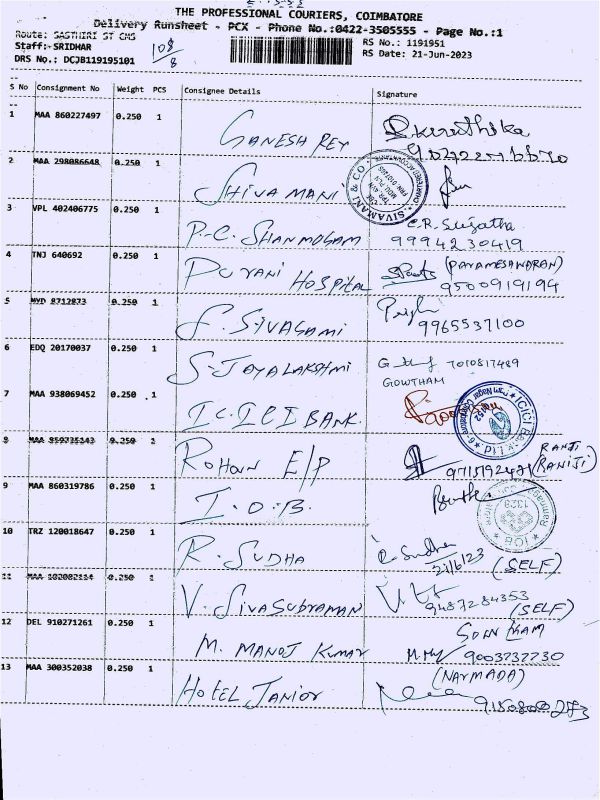 THE PROFESSIONAL COURIERS, COIMBATORE
Delivery Runsheet - PCX - Phone No.:0422-3505555 - Page No.:1
Route: SASTHIRI ST CMS
Staff:- SRIDHAR
108/8
DRS No.: DCJB119195101
RS No.: 1191951
RS Date: 21-Jun-2023
S No Consignment No Weight PCS Consignee Details Signature
1 MAA 860227497 0.250 1 GANESH REY
2 MAA 298086648 0.250 1 SHIVAMANI
SIVAMANI & CO.
3 VPL 402406775 0.250 1 P.C. SHANMOGAM C.R. Sujatha
9994230419
4 TNJ 640692 0.250 1 PURANI HOSPITAL (PARAMESHWARAN)
9500919194
5 MYD 8712873 0.250 1 S. SIVAGAMI
9965537100
6 EDQ 20170037 0.250 1 S-JAYALAKSHMI 7010817489
GOWTHAM
7 MAA 938069452 0.250 1 I.C.I.C.I BANK.
ICICI Bank Ltd
8 MAA 859735243 0.250 1 ROHAN E/P
9 MAA 860319786 0.250 1 I.O.B.
1328
10 TRZ 120018647 0.250 1 R. SUDHA R. Sudha
21/6/23 (SELF)
11 MAA 102082114 0.250 1 V. SIVASUBRAMAN
9487284353
(SELF)
12 DEL 910271261 0.250 1 M. MANOJ KUMAR
9003737730
13 MAA 300352038 0.250 1 HOTEL JANIOR (NARMADA)